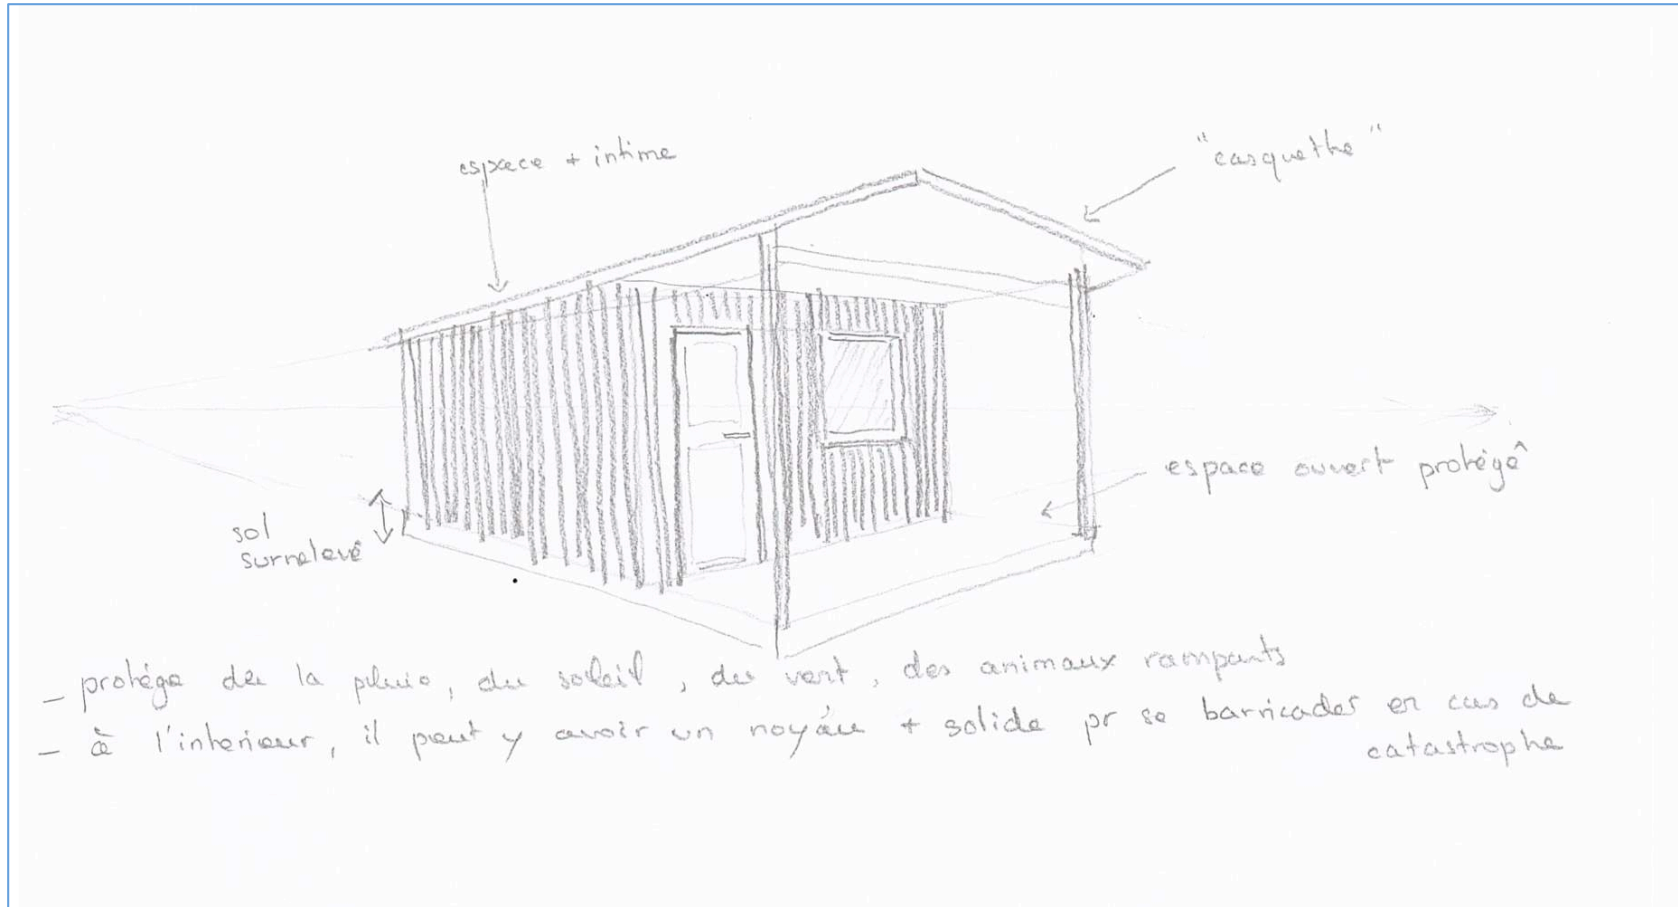 espace + intime
"casquette"
espace ouvert protégé
sol
surrelevé
- protège de la pluie, du soleil, du vent, des animaux rampants
- à l'interieur, il peut y avoir un noyau + solide pr se barricader en cas de
catastrophe